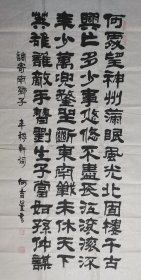 何處望神州滿眼風光北固樓千古
興亡多少事悠悠不盡長江滾滾流
年少萬兜鍪坐斷東南戰未休天下
英雄誰敵手曹劉生子當如孫仲謀
調寄南鄉子 辛稼軒詞 何書